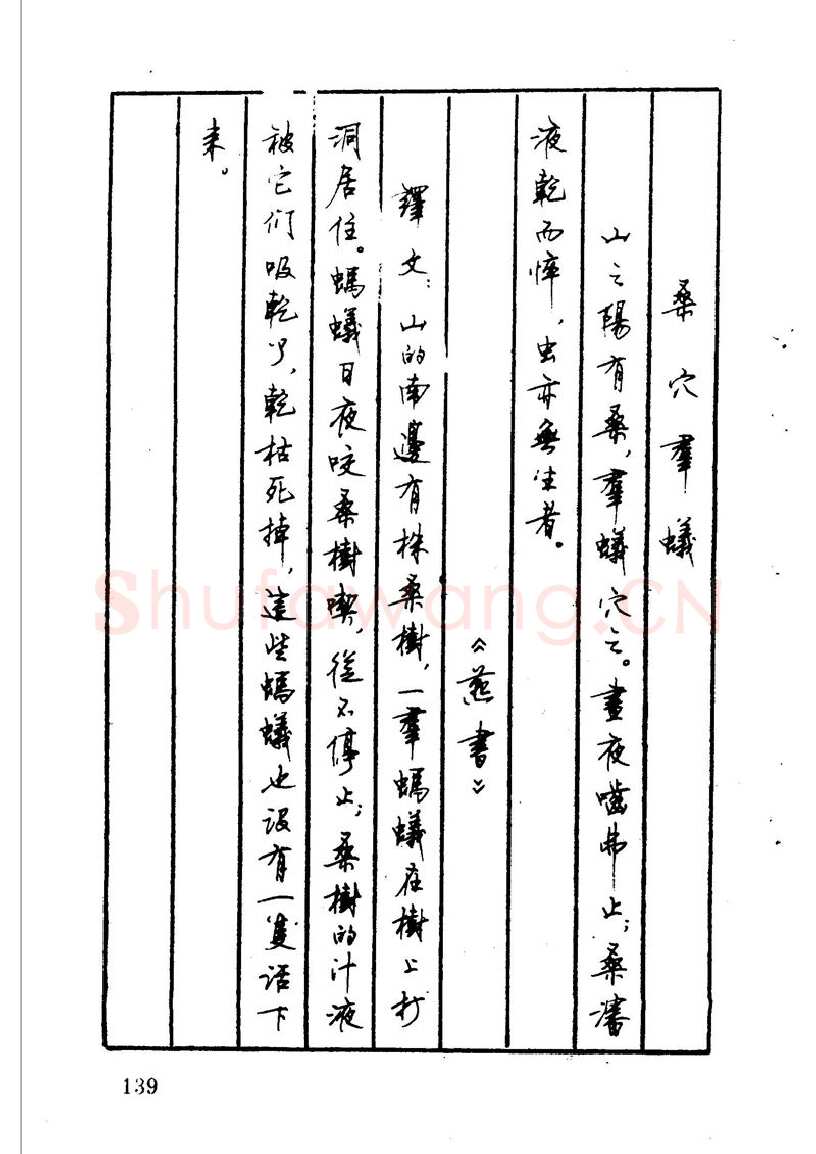 桑穴羣蟻
山之陽有桑，羣蟻穴之。晝夜嚙弗止；桑瀋
液乾而悴，虫亦無生者。
《燕書》
譯文：山的南邊有株桑樹，一羣螞蟻在樹上打
洞居住。螞蟻日夜咬桑樹喫，從不停止；桑樹的汁液
被它们吸乾了，乾枯死掉，這些螞蟻也没有一隻活下
来。
139
Shufawang.CN